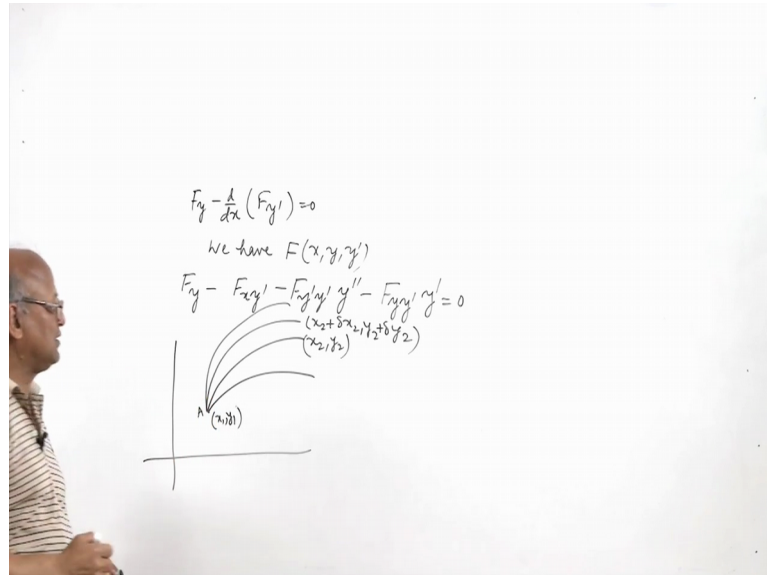 Fy - d/dx (Fy') = 0
We have F(x, y, y')
Fy - Fxy' - Fy'y' y'' - Fyy' y' = 0
(x₂+δx₂, y₂+δy₂)
(x₂, y₂)
A (x₁, y₁)